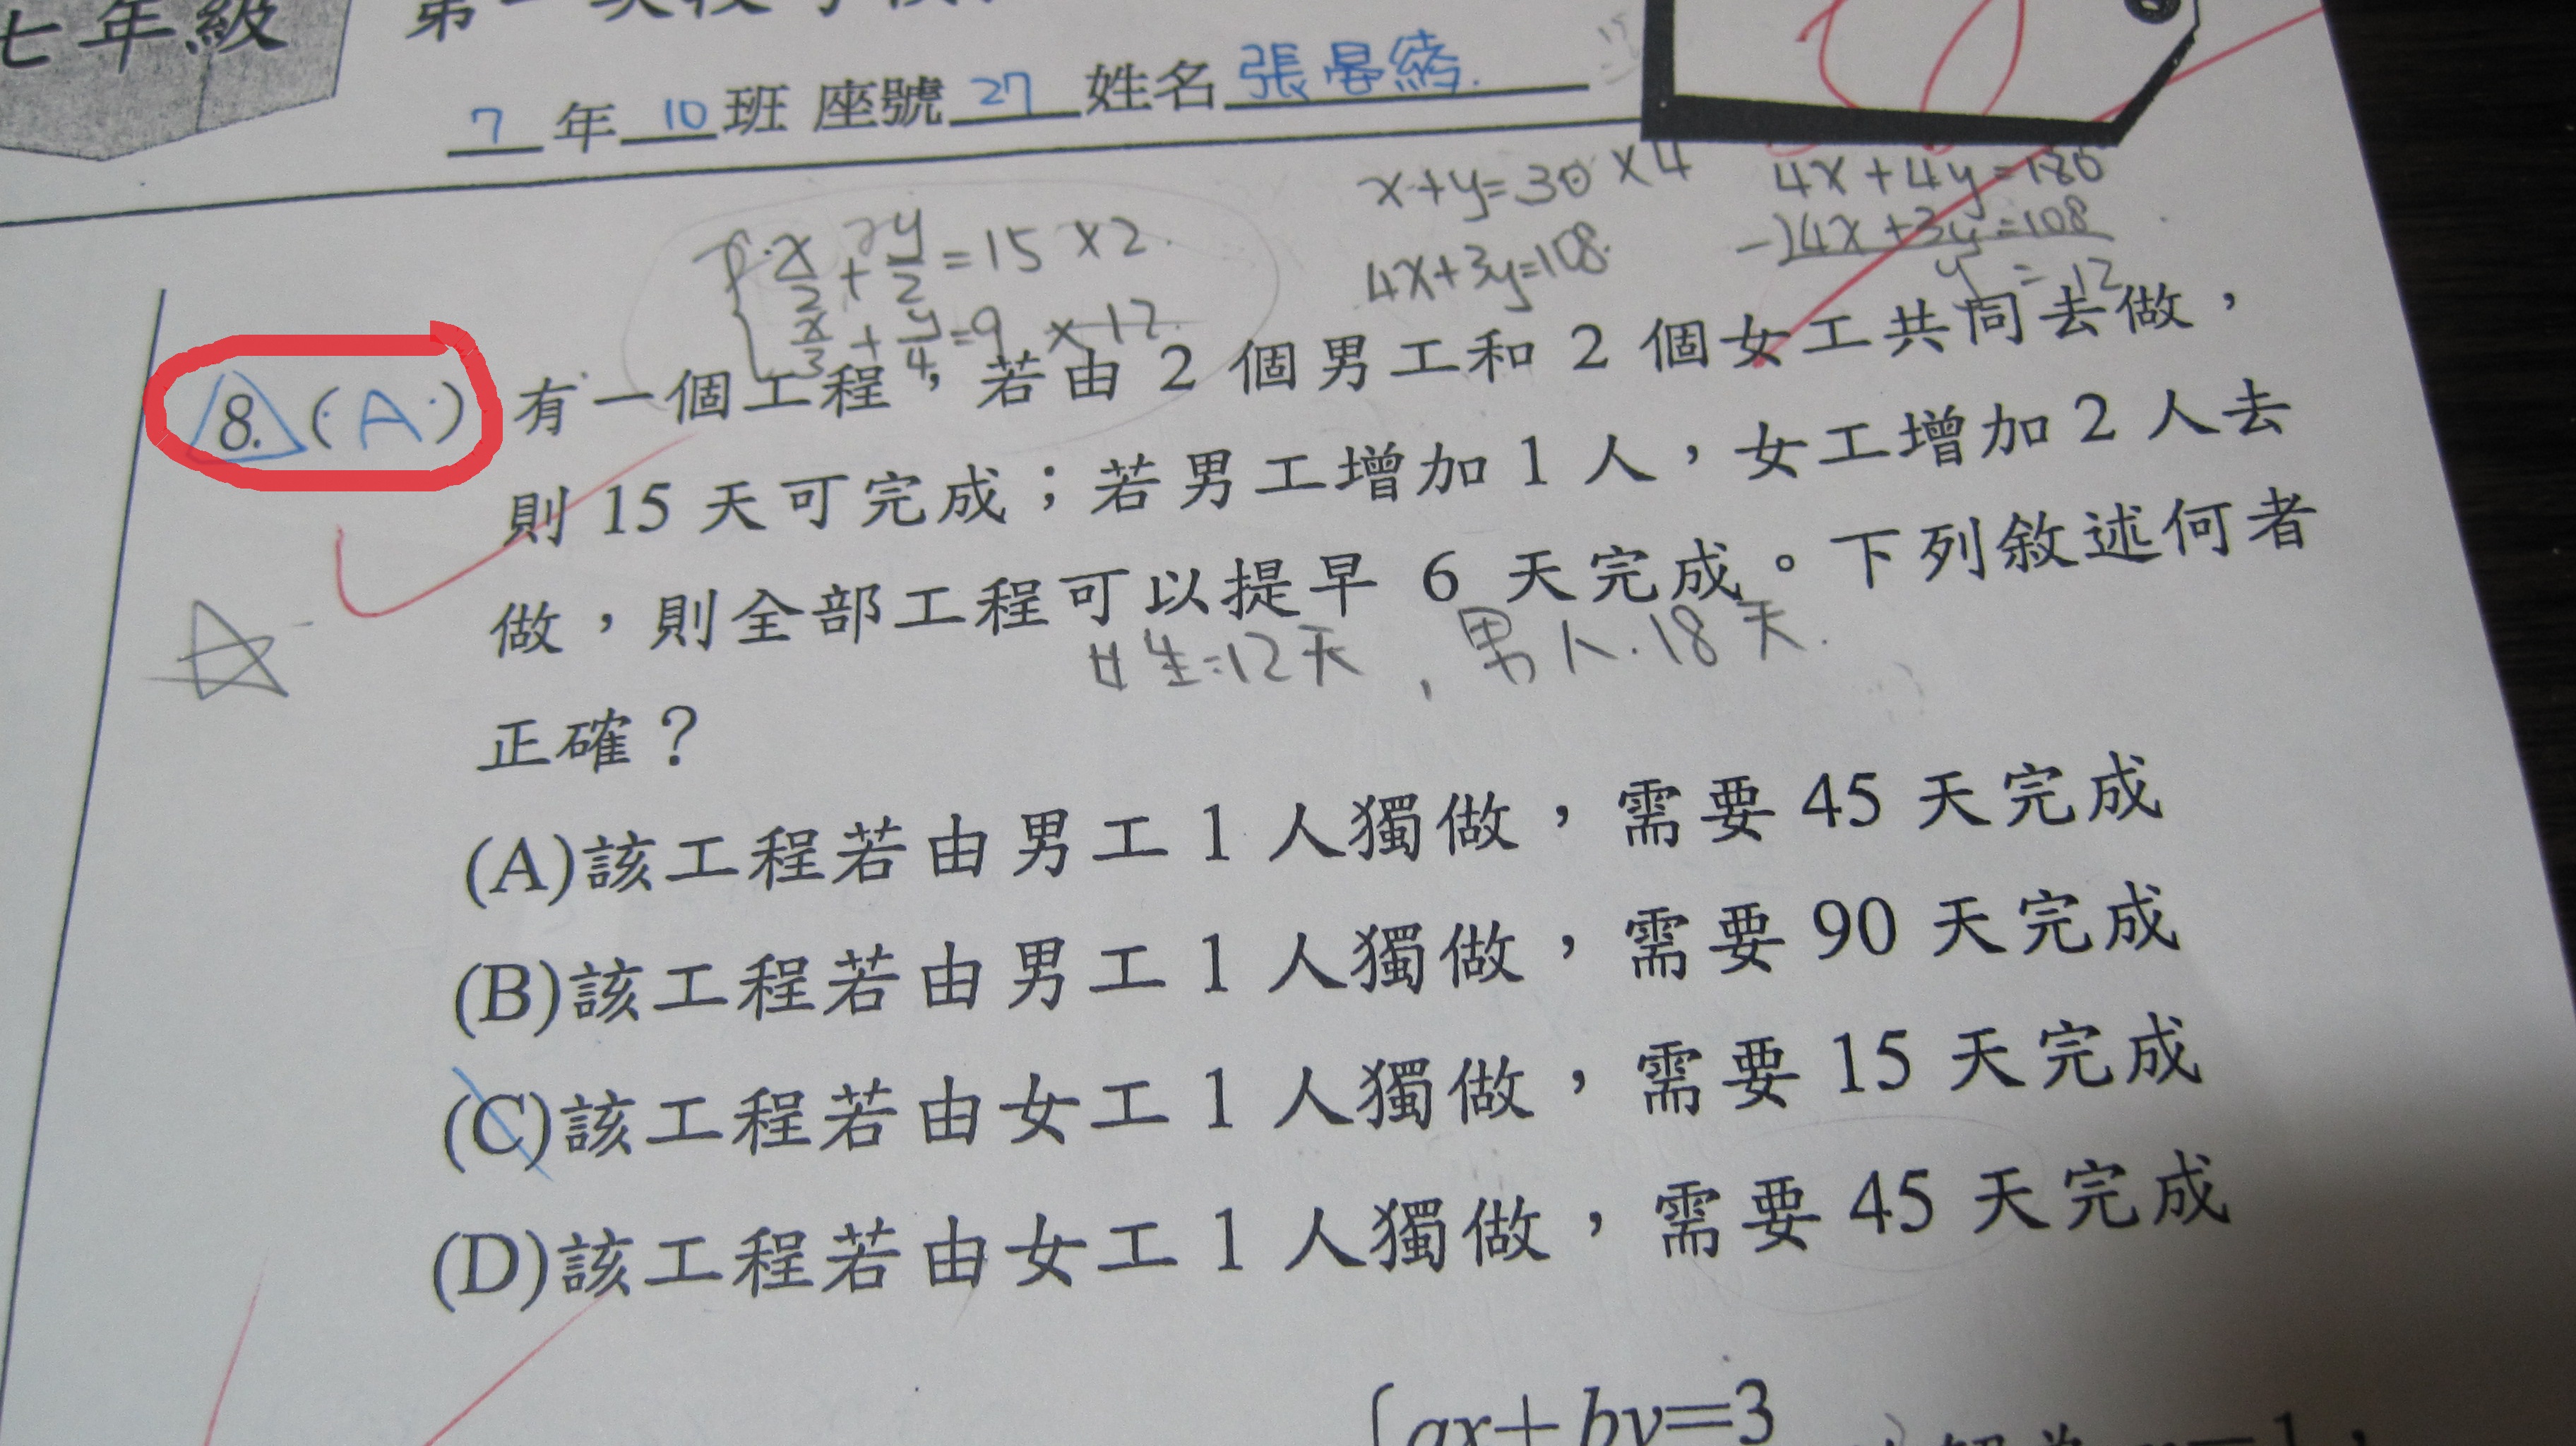 七年級
7年10班 座號27 姓名張
x+y=30 ×4
4x+4y=120
x/2+y/2=15 ×2
4x+3y=108
-)4x+3y=108
x/3+y/4=9 ×12
y=12
8.(A) 有一個工程，若由 2 個男工和 2 個女工共同去做，
則 15 天可完成；若男工增加 1 人，女工增加 2 人去
做，則全部工程可以提早 6 天完成。下列敘述何者
女生=12天，男人.18天.
正確？
(A)該工程若由男工 1 人獨做，需要 45 天完成
(B)該工程若由男工 1 人獨做，需要 90 天完成
(C)該工程若由女工 1 人獨做，需要 15 天完成
(D)該工程若由女工 1 人獨做，需要 45 天完成
ax+by=3